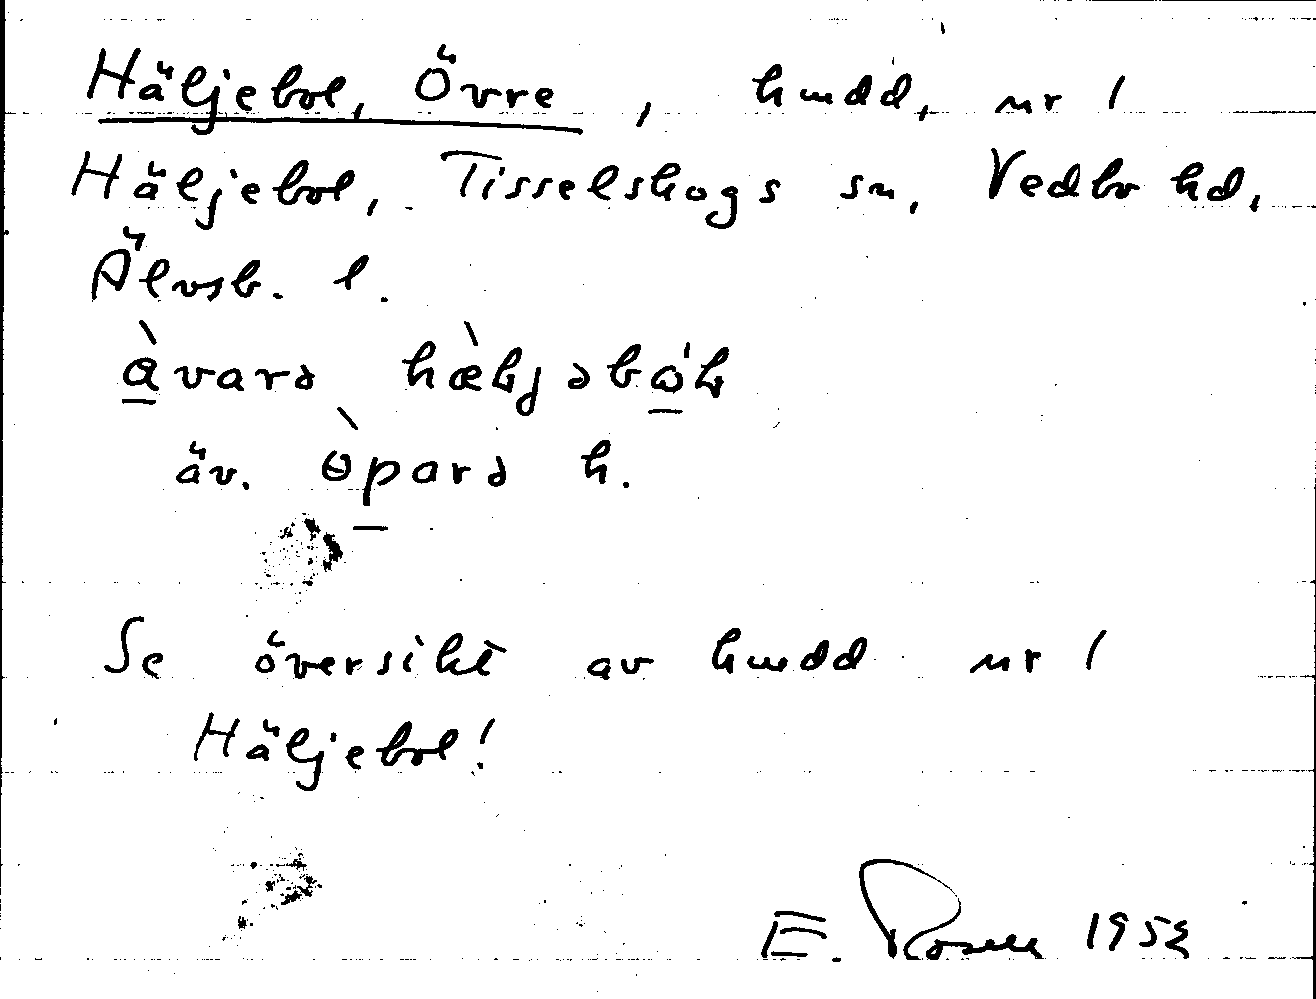 Häljebol, Övre, hmdd, nr 1
Häljebol, Tisselskogs sn, Vedbo hd,
Älvsb. l.
àvarə hæ̀ljəbo̍l
äv. ɵ̀parə h.
Se översikt av hmdd nr 1
Häljebol!
E. Rosell